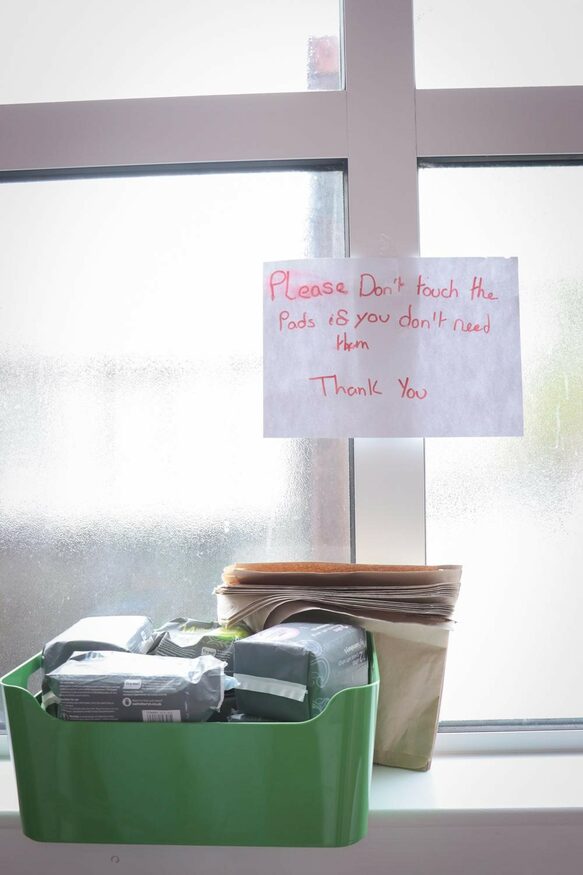 Please Don't touch the
Pads is you don't need
them
Thank You